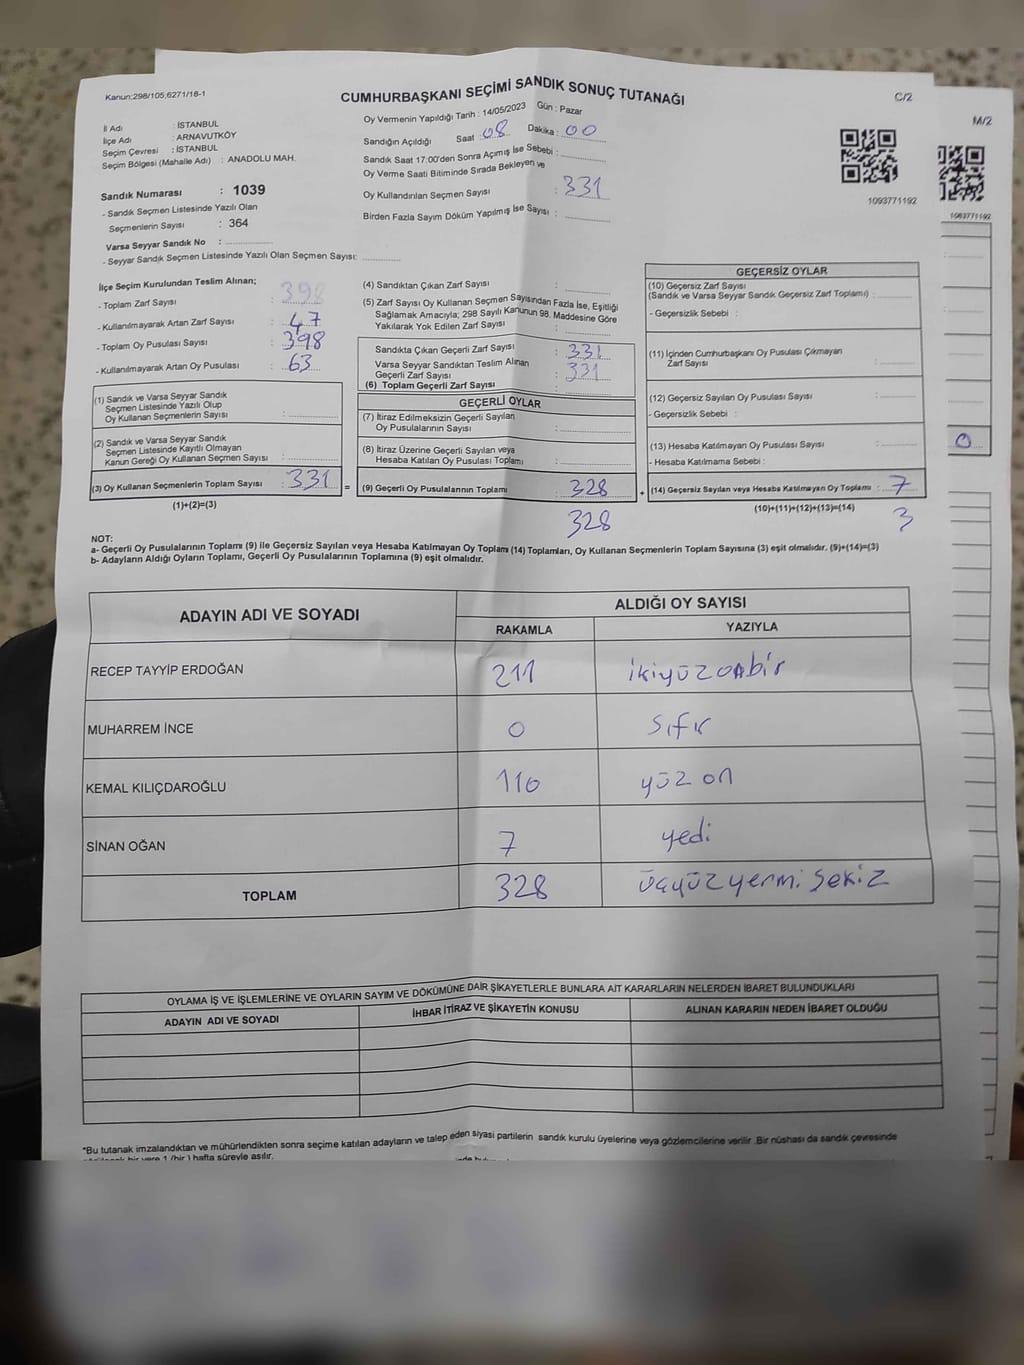 Kanun:298/105;6271/18-1
CUMHURBAŞKANI SEÇİMİ SANDIK SONUÇ TUTANAĞI
C/2
M/2
İl Adı : İSTANBUL
İlçe Adı : ARNAVUTKÖY
Seçim Çevresi : İSTANBUL
Seçim Bölgesi (Mahalle Adı) : ANADOLU MAH.
Sandık Numarası : 1039
- Sandık Seçmen Listesinde Yazılı Olan
Seçmenlerin Sayısı : 364
Varsa Seyyar Sandık No :
- Seyyar Sandık Seçmen Listesinde Yazılı Olan Seçmen Sayısı:
Oy Vermenin Yapıldığı Tarih : 14/05/2023 Gün : Pazar
Sandığın Açıldığı Saat : 08 Dakika : 00
Sandık Saat 17:00'den Sonra Açmış İse Sebebi :
Oy Verme Saati Bitiminde Sırada Bekleyen ve
Oy Kullandırılan Seçmen Sayısı : 331
Birden Fazla Sayım Döküm Yapılmış İse Sayısı :
1093771192
1093771192
İlçe Seçim Kurulundan Teslim Alınan;
- Toplam Zarf Sayısı : 398
- Kullanılmayarak Artan Zarf Sayısı : 47
- Toplam Oy Pusulası Sayısı : 398
- Kullanılmayarak Artan Oy Pusulası : 63
(1) Sandık ve Varsa Seyyar Sandık
Seçmen Listesinde Yazılı Olup
Oy Kullanan Seçmenlerin Sayısı :
(2) Sandık ve Varsa Seyyar Sandık
Seçmen Listesinde Kayıtlı Olmayan
Kanun Gereği Oy Kullanan Seçmen Sayısı :
(3) Oy Kullanan Seçmenlerin Toplam Sayısı : 331 =
(1)+(2)=(3)
(4) Sandıktan Çıkan Zarf Sayısı :
(5) Zarf Sayısı Oy Kullanan Seçmen Sayısından Fazla İse, Eşitliği
Sağlamak Amacıyla; 298 Sayılı Kanunun 98. Maddesine Göre
Yakılarak Yok Edilen Zarf Sayısı :
Sandıkta Çıkan Geçerli Zarf Sayısı : 331
Varsa Seyyar Sandıktan Teslim Alınan
Geçerli Zarf Sayısı : 331
(6) Toplam Geçerli Zarf Sayısı :
GEÇERLİ OYLAR
(7) İtiraz Edilmeksizin Geçerli Sayılan
Oy Pusulalarının Sayısı :
(8) İtiraz Üzerine Geçerli Sayılan veya
Hesaba Katılan Oy Pusulası Toplamı :
(9) Geçerli Oy Pusulalarının Toplamı : 328 +
328
GEÇERSİZ OYLAR
(10) Geçersiz Zarf Sayısı
(Sandık ve Varsa Seyyar Sandık Geçersiz Zarf Toplamı) :
- Geçersizlik Sebebi :
(11) İçinden Cumhurbaşkanı Oy Pusulası Çıkmayan
Zarf Sayısı :
(12) Geçersiz Sayılan Oy Pusulası Sayısı :
- Geçersizlik Sebebi :
(13) Hesaba Katılmayan Oy Pusulası Sayısı :
- Hesaba Katılmama Sebebi :
(14) Geçersiz Sayılan veya Hesaba Katılmayan Oy Toplamı : 7
(10)+(11)+(12)+(13)=(14)
3
0
NOT:
a- Geçerli Oy Pusulalarının Toplamı (9) ile Geçersiz Sayılan veya Hesaba Katılmayan Oy Toplam (14) Toplamları, Oy Kullanan Seçmenlerin Toplam Sayısına (3) eşit olmalıdır. (9)+(14)=(3)
b- Adayların Aldığı Oyların Toplamı, Geçerli Oy Pusulalarının Toplamına (9) eşit olmalıdır.
ADAYIN ADI VE SOYADI
ALDIĞI OY SAYISI
RAKAMLA
YAZIYLA
RECEP TAYYİP ERDOĞAN 211 ikiyüzonbir
MUHARREM İNCE 0 sıfır
KEMAL KILIÇDAROĞLU 110 yüz on
SİNAN OĞAN 7 yedi
TOPLAM 328 üçyüzyermi sekiz
OYLAMA İŞ VE İŞLEMLERİNE VE OYLARIN SAYIM VE DÖKÜMÜNE DAİR ŞİKAYETLERLE BUNLARA AİT KARARLARIN NELERDEN İBARET BULUNDUKLARI
ADAYIN ADI VE SOYADI
İHBAR İTİRAZ VE ŞİKAYETİN KONUSU
ALINAN KARARIN NEDEN İBARET OLDUĞU
*Bu tutanak imzalandıktan ve mühürlendikten sonra seçime katılan adayların ve talep eden siyasi partilerin sandık kurulu üyelerine veya gözlemcilerine verilir. Bir nüshası da sandık çevresinde
bir yere 1 (bir) hafta süreyle asılır.